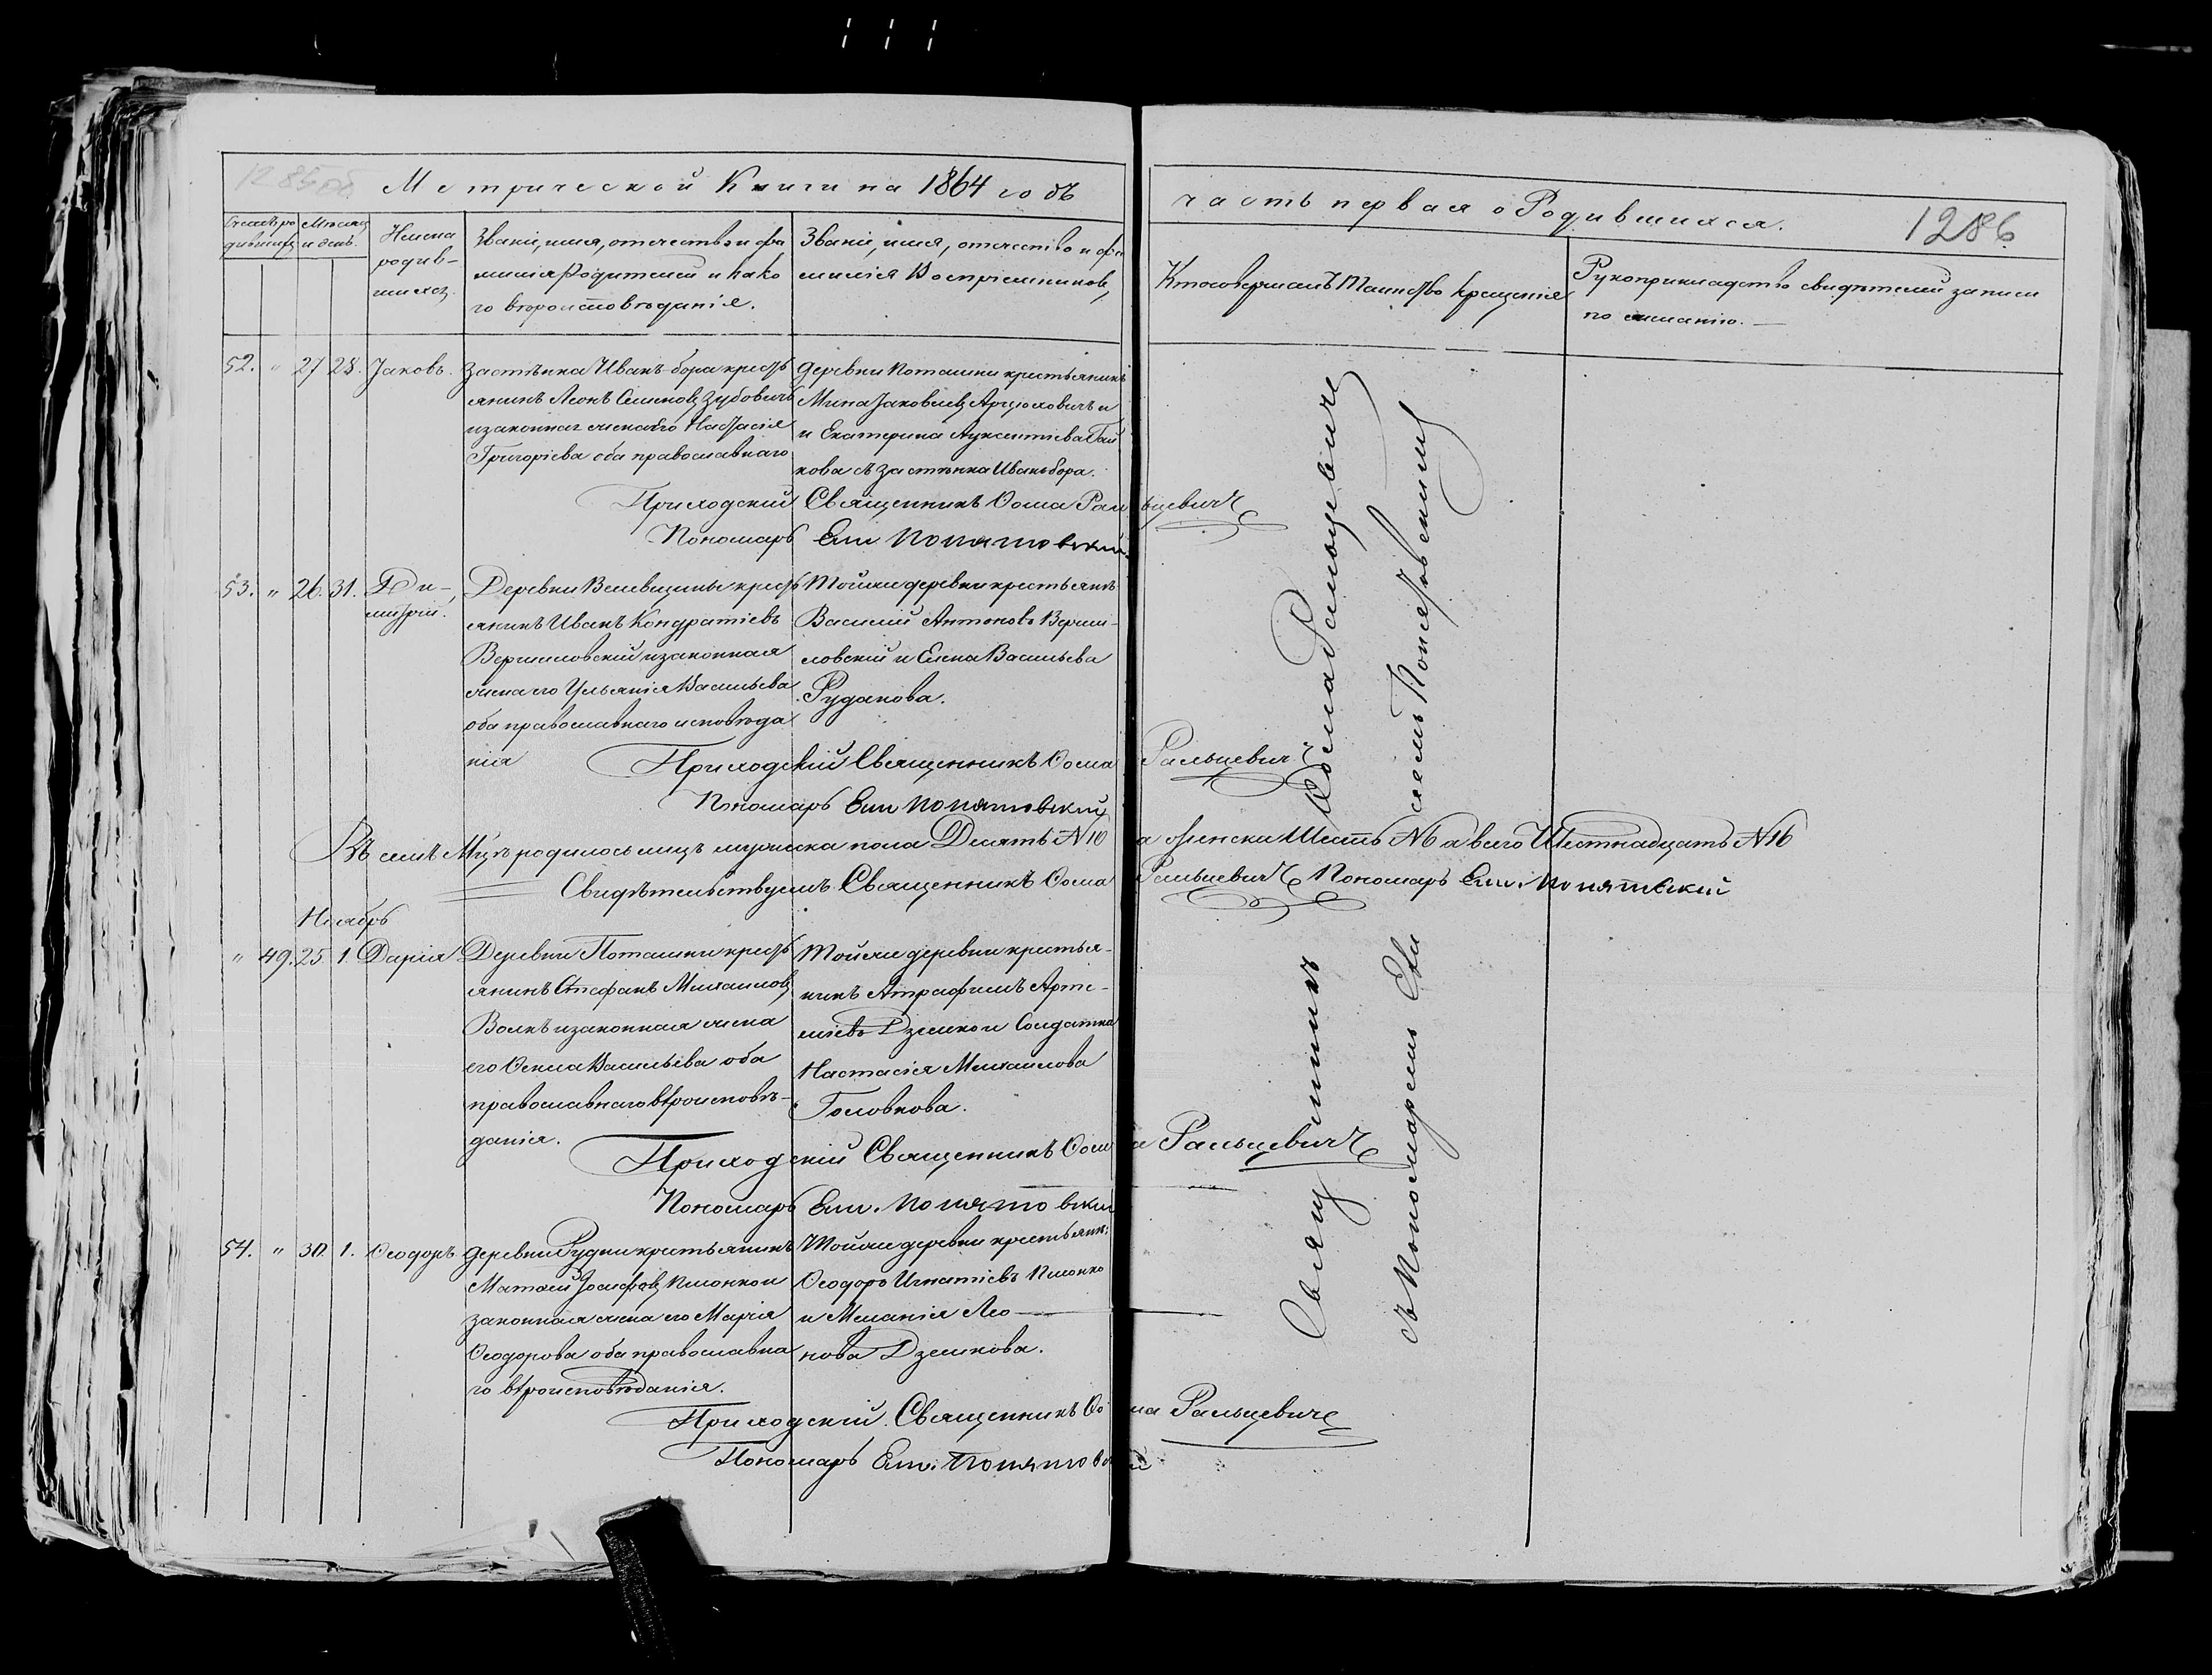 Метрической Книги на 1864 годъ
часть первая о Родившихся.
1286
Счетъ ро
дившихъ
Мѣсяц
и день.
Имена
родив-
шихся.
Званіе, имя, отечество и фа
милія Родителей и како
го вѣроисповѣданія.
Званіе, имя, отечество и фа
милія Воспріемниковъ,
Кто совершалъ Таинство Крещенія
Рукоприкладство свидѣтелей записи
по желанію.
52. " 27 28. Іаковъ.
Застѣнка Иванъ-бора крест
янинъ Леонъ Семеновъ Зубовичъ
и законная жена его Настасія
Григоріева оба православнаго
деревни Поташни крестьянинъ
Мина Іаковлевъ Арцюховичъ и
и Екатерина Ауксентіева Гай
кова съ застѣнка Иванъбора.
Приходскій Священникъ Ѳома Ральцевичъ
Пономарь Ем Понятовскій
53. " 26. 31. Ди-
митрій.
Деревни Велевщины крест
янинъ Иванъ Кондратіевъ
Вершиловскій и законная
жена его Ульянія Васильева
оба православнаго исповѣда
нія
Тойже деревни крестьянъ
Василій Антоновъ Верши-
ловскій и Елена Васильева
Рудакова.
Приходскій Священникъ Ѳома Ральцевичъ
Пономарь Ем Понятовскій
Въ семъ Мцѣ родилось лицъ мужска пола Десять N 10 а женска Шесть N 6 а всего Шестнадцать N 16
Свидѣтельствуемъ Священникъ Ѳома Ральцевичъ Пономарь Ем. Понятовскій
Ноябрь
" 49. 25 1. Дарія
Деревни Поташни крест
янинъ Стефанъ Михаиловъ
Волкъ и законная жена
его Ѳекла Васильева оба
православнаго вѣроисповѣ-
данія.
Тойже деревни крестья-
нинъ Атрафимъ Арте-
міевъ Дземко и Солдатка
Настасія Михаилова
Головкова.
Приходскій Священникъ Ѳома Ральцевичъ
Пономарь Ем. Понятовскій
54. " 30. 1. Ѳеодоръ
деревни Рудни крестьянинъ
Матѳей Іосифовъ Клюнко и
законная жена его Марія
Ѳеодорова оба православна
го вѣроисповѣданія.
Тойже деревни крестьянин:
Ѳеодоръ Игнатіевъ Клюнко
и Меланія Лео
нова Дземкова.
Приходскій Священникъ Ѳома Ральцевичъ
Пономарь Ем. Понятовскій
Священникъ Ѳома Ральцевичъ
съ Пономаремъ Емельяномъ Понятовскимъ